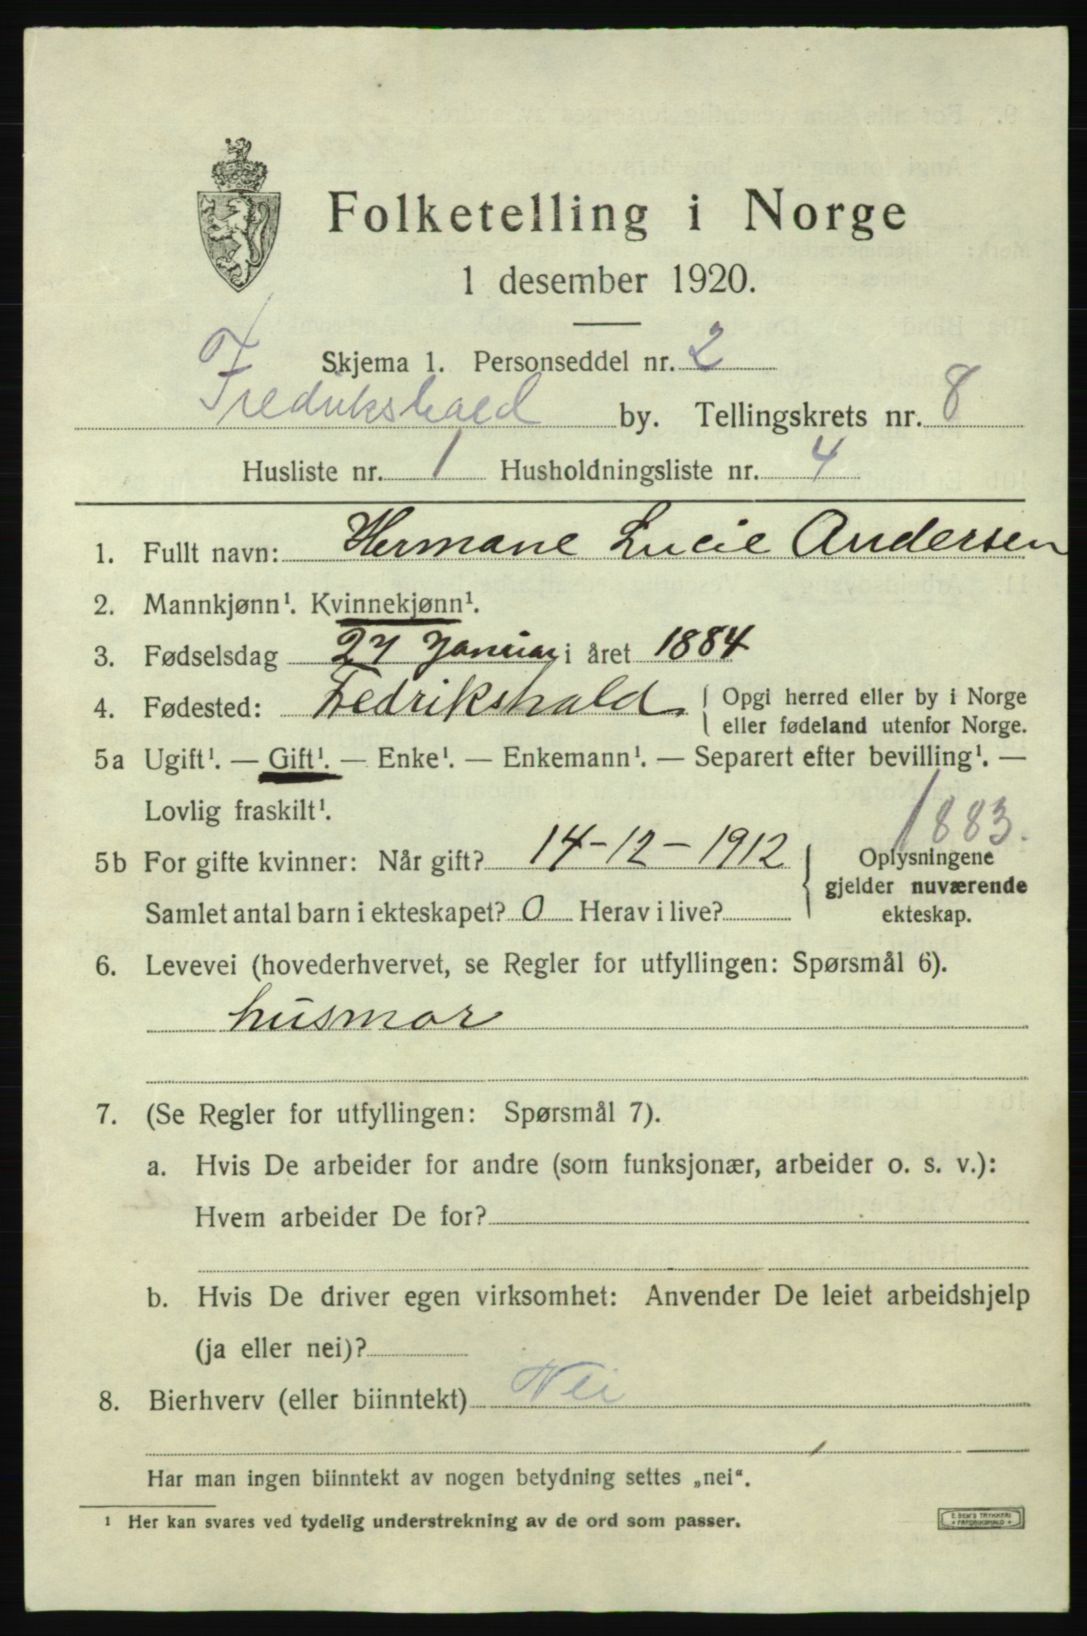 Folketelling i Norge
1 desember 1920.
Skjema 1. Personseddel nr. 2
Fredrikshald by. Tellingskrets nr. 8
Husliste nr. 1 Husholdningsliste nr. 4
1. Fullt navn: Hermane Lucie Andersen
2. Mannkjønn¹. Kvinnekjønn¹.
3. Fødselsdag 27 Januar i året 1884
4. Fødested: Fedrikshald. { Opgi herred eller by i Norge
eller fødeland utenfor Norge.
5a Ugift¹. — Gift¹. — Enke¹. — Enkemann¹. — Separert efter bevilling¹. —
Lovlig fraskilt¹.
1883.
5b For gifte kvinner: Når gift? 14-12-1912 { Oplysningene
gjelder nuværende
Samlet antal barn i ekteskapet? 0 Herav i live? ekteskap.
6. Levevei (hovederhvervet, se Regler for utfyllingen: Spørsmål 6).
husmor
7. (Se Regler for utfyllingen: Spørsmål 7).
a. Hvis De arbeider for andre (som funksjonær, arbeider o. s. v.):
Hvem arbeider De for?
b. Hvis De driver egen virksomhet: Anvender De leiet arbeidshjelp
(ja eller nei)?
8. Bierhverv (eller biinntekt) Nei
Har man ingen biinntekt av nogen betydning settes „nei“.
¹ Her kan svares ved tydelig understrekning av de ord som passer.
E. SEM'S TRYKKERI
• FREDRIKSHALD •